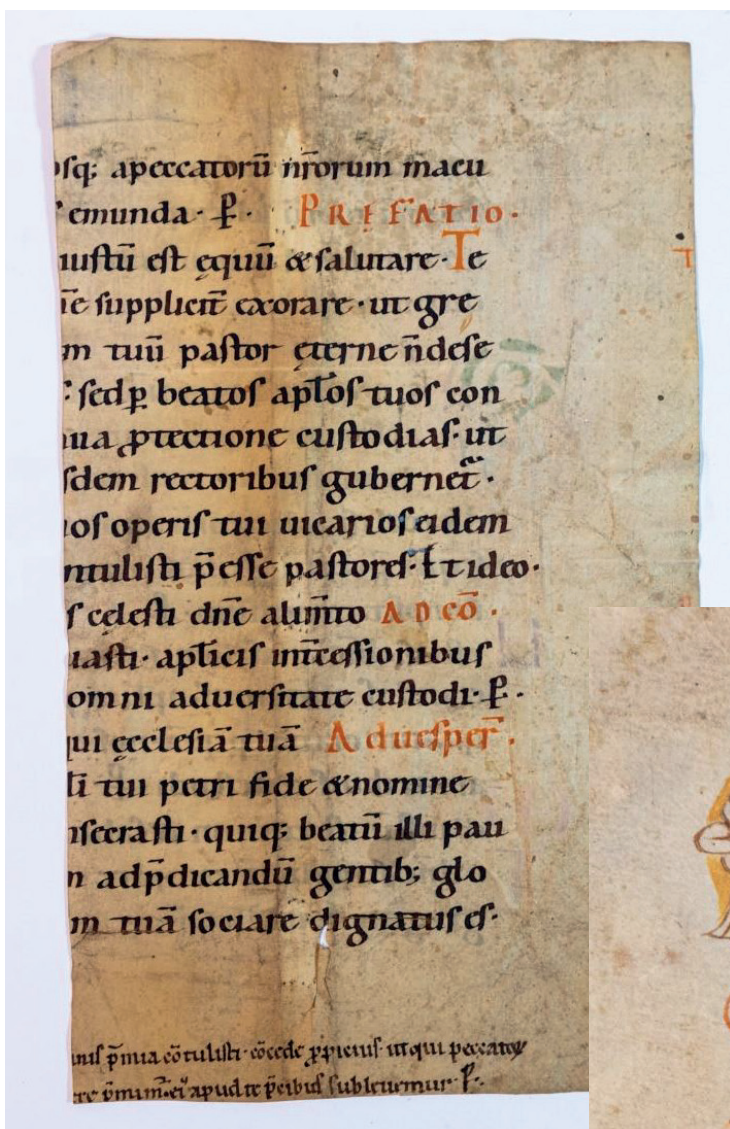 osq; apeccatorū nr̄orum macu
emunda · P̄ · PREFATIO ·
iustū est ęquū & salutare · Te
n̄e supplicit̄ exorare · ut gre
m tuū pastor ęterne n̄dese
sed p̱ beatos apl̄os tuos con
nua ꝓtectione custodias · ut
sdem rectoribus gubernet᷑ ·
uos operis tui uicarios eidem
ntulisti p̄esse pastores · Et ideo ·
s cęlesti dn̄e alim̄to AD CŌ ·
uasti · apl̄icis int̄cessionibus
omni aduersitate custodi · P̄ ·
qui ęcclesiā tuā Ad uesper̄ ·
l̄i tui petri fide & nomine
nsecrasti · quiq; beatū illi pau
m adp̄dicandū gentib; glo
m tuā sociare dignatus es ·
T
p̄mia cōtulisti · cōcede ꝓpicius · ut qui peccatoꝝ
apud te p̄cibus subleuemur · P̄ ·